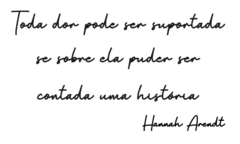 Toda dor pode ser suportada
se sobre ela puder ser
contada uma história
Hannah Arendt